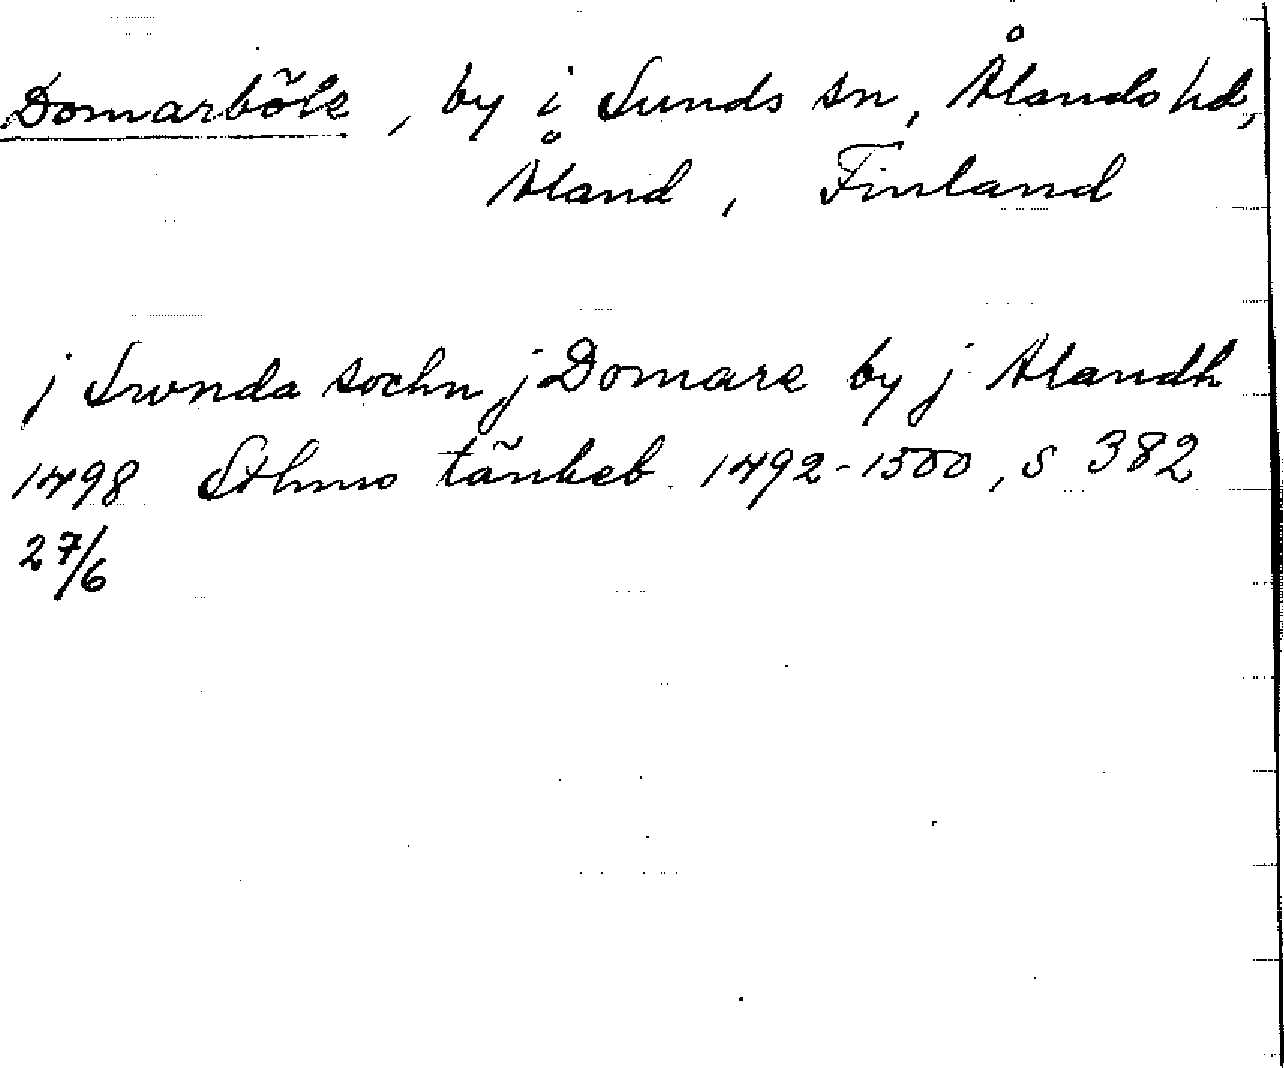 Domarböle, by i Sunds sn, Ålands hd,
Åland, Finland
j Swnda sochn j Domare by j Alandh
1498 Sthms tänkeb 1492-1500, s 382
27/6